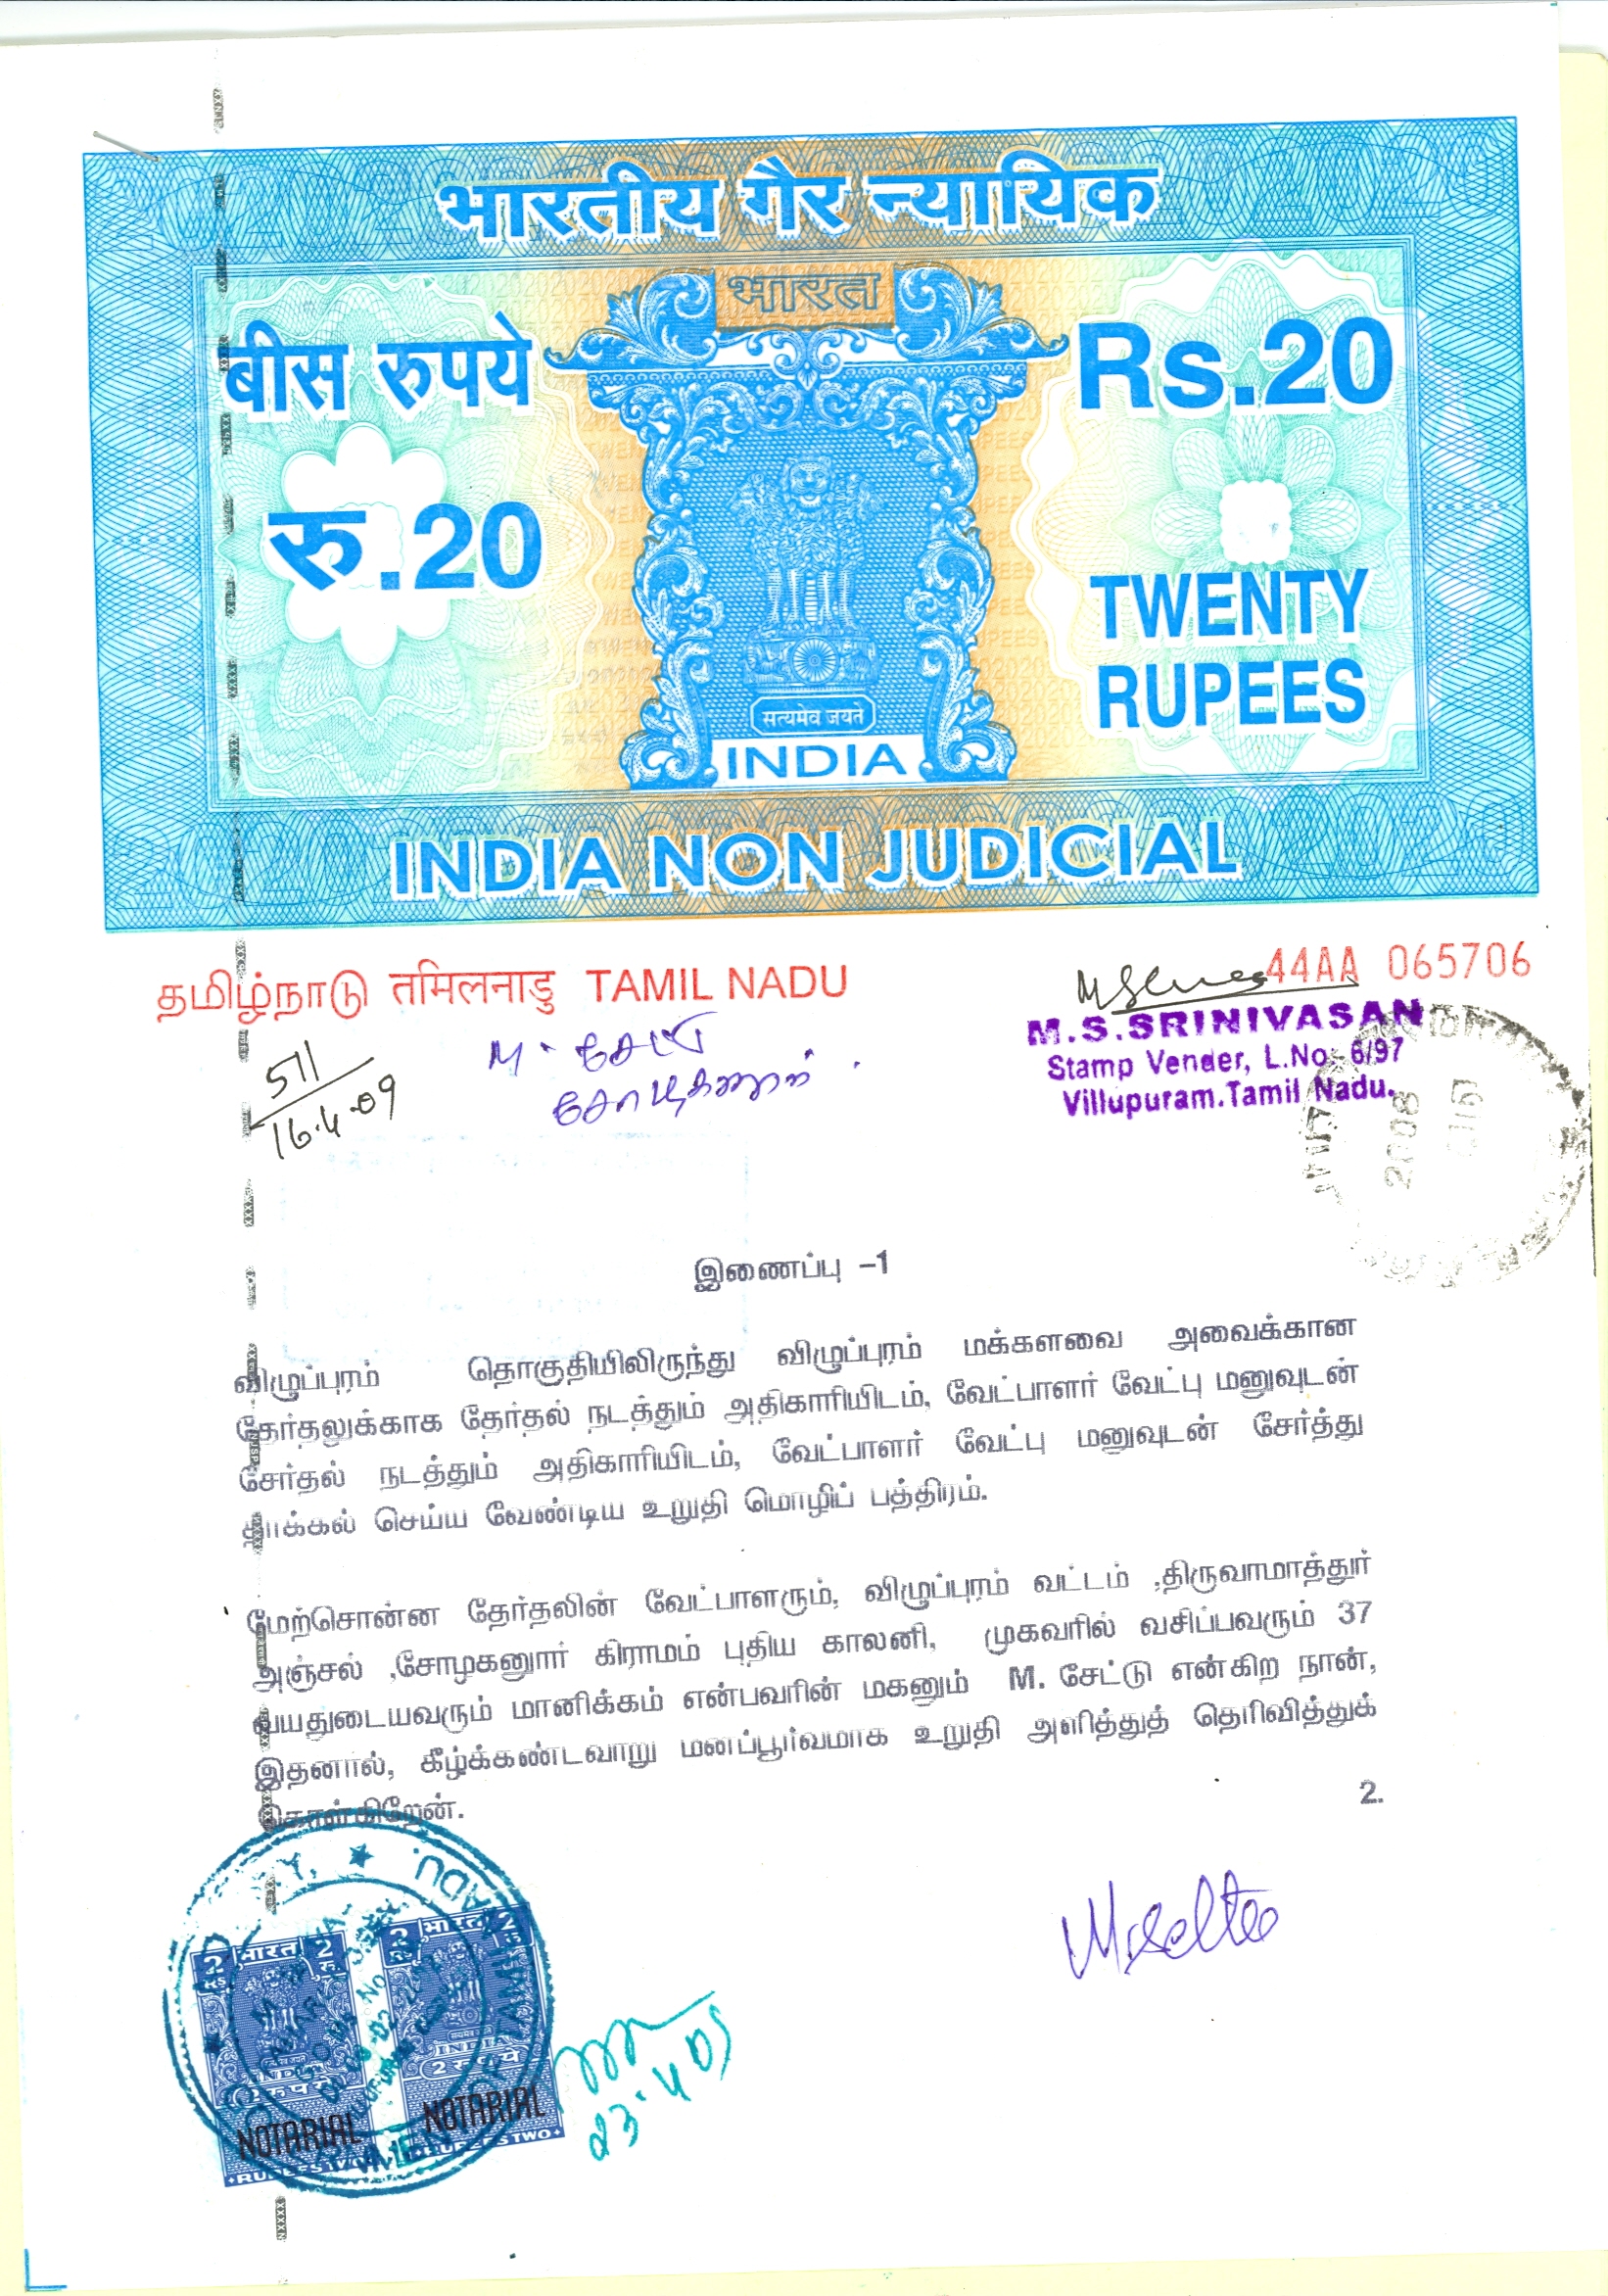 भारतीय गैर न्यायिक
भारत
बीस रुपये
Rs.20
रु.20
TWENTY
RUPEES
सत्यमेव जयते
INDIA
INDIA NON JUDICIAL
தமிழ்நாடு तमिलनाडु TAMIL NADU
44AA 065706
511
16.4.09
M. சேட்டு
M.S.SRINIVASAN
Stamp Vender, L.No: 6/97
Villupuram.Tamil Nadu.
2008
இணைப்பு -1
விழுப்புரம் தொகுதியிலிருந்து விழுப்புரம் மக்களவை அவைக்கான
தேர்தலுக்காக தேர்தல் நடத்தும் அதிகாரியிடம், வேட்பாளர் வேட்பு மனுவுடன்
சேர்தல் நடத்தும் அதிகாரியிடம், வேட்பாளர் வேட்பு மனுவுடன் சேர்த்து
தாக்கல் செய்ய வேண்டிய உறுதி மொழிப் பத்திரம்.
மேற்சொன்ன தேர்தலின் வேட்பாளரும், விழுப்புரம் வட்டம் ,திருவாமாத்துர்
அஞ்சல் ,சோழகனுார் கிராமம் புதிய காலனி, முகவரில் வசிப்பவரும் 37
வயதுடையவரும் மானிக்கம் என்பவரின் மகனும் M. சேட்டு என்கிற நான்,
இதனால், கீழ்க்கண்டவாறு மனப்பூர்வமாக உறுதி அளித்துத் தெரிவித்துக்
கொள்கிறேன்.
2.
2 भारत 2
RS रु.
2 भारत 2
INDIA
2 रुपये
INDIA
2 रुपये
NOTARIAL
NOTARIAL
RUPEES TWO
RUPEES TWO
23.4.09